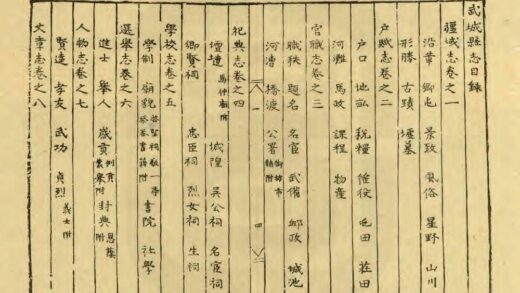 武城縣志目錄
疆域志卷之一
沿革 鄉屯 景致 風俗 星野 山川
形勝 古蹟 墓
戶賦志卷之二
戶口 地畝 稅糧 徭役 屯田 莊田
河灘 馬政 課程 物產
官職志卷之三
職秩 題名 名宦 武備 郵政 城池
河漕 橋渡 公署 街坊市 附
祀典志卷之四
壇壝 馬神廟附 城隍 吳公祠 名宦祠
鄉賢祠 忠臣祠 烈女祠 生祠
學校志卷之五
學制 廟貌 啓聖祠敬一亭 祭器書籍附 書院 社學
選舉志卷之六
進士 舉人 歲貢 例貢 附 封典 恩蔭附
人物志卷之七
賢達 孝友 武功 貞烈 義士附
文章志卷之八